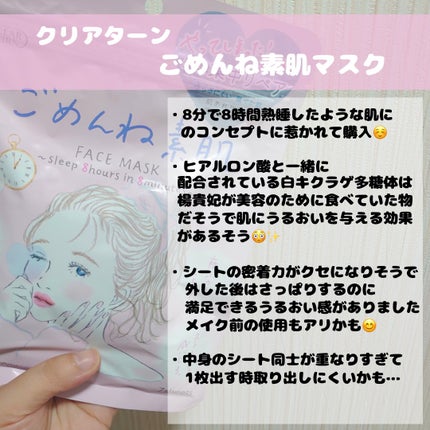 クリアターン
ごめんね素肌マスク
やってしまった
ごめんね
素肌
FACE MASK
~sleep 8hours in 8minu
・8分で8時間熟睡したような肌に
のコンセプトに惹かれて購入☺️
・ヒアルロン酸と一緒に
配合されている白キクラゲ多糖体は
楊貴妃が美容のために食べていた物
だそうで肌にうるおいを与える効果
があるそう😳✨
・シートの密着力がクセになりそうで
外した後はさっぱりするのに
満足できるうるおい感がありました
メイク前の使用もアリかも😊
・中身のシート同士が重なりすぎて
1枚出す時取り出しにくいかも…